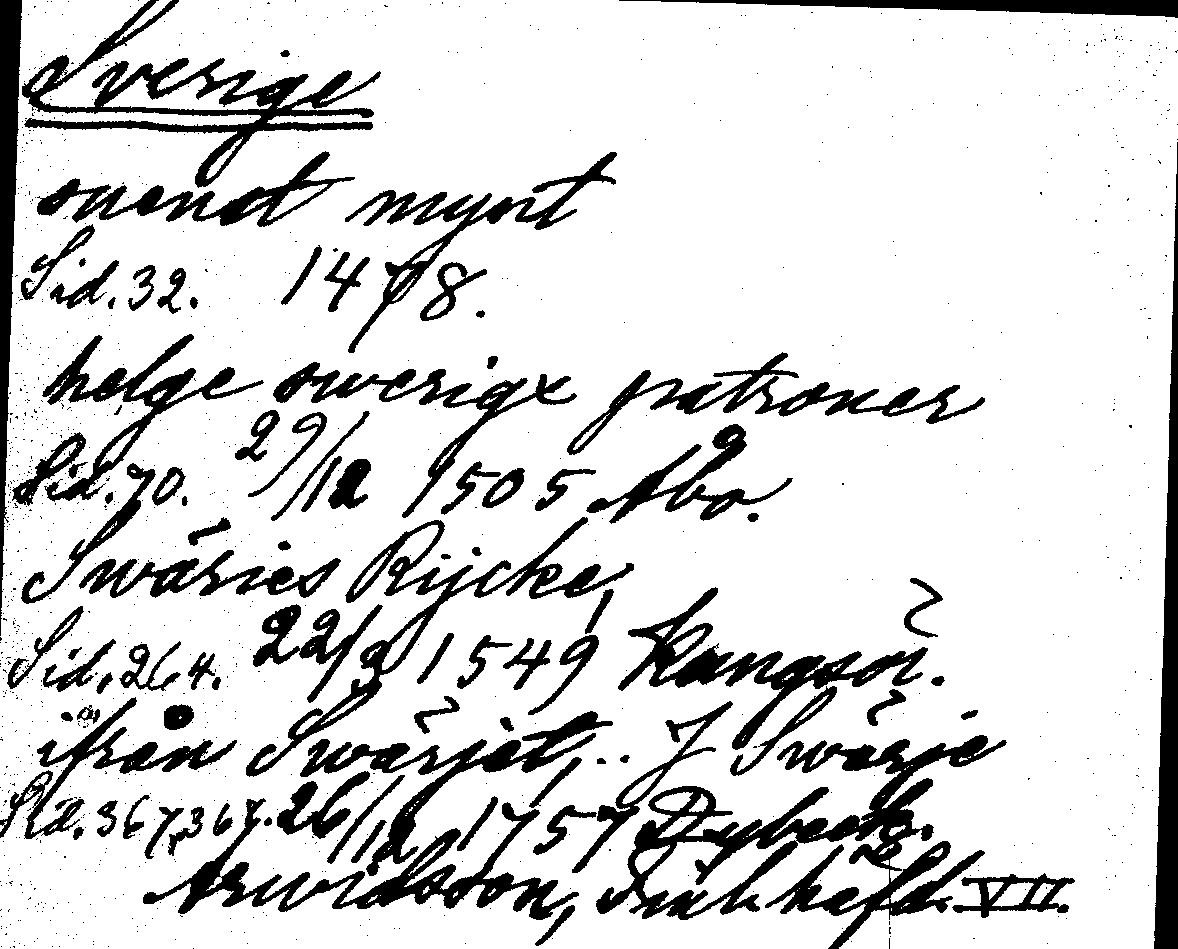 Sverige
suenst mynt
Sid. 32. 1478.
helge swerigx patroner
Sid. 70. 29/12 1505 Åbo.
Swäries Rijcke,
Sid. 264. 22/3 1549 Kungsör.
ifrån Swärjet, .. J Swärje
Sid. 367, 367. 26/12 1757 Dybeck.
Arwidsson, Finl. häfd. VII.